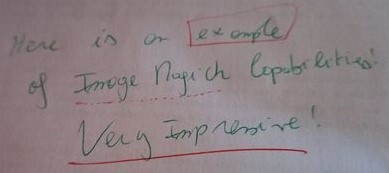 Here is an example
of Image Magick Capabilities!
Very Impressive!